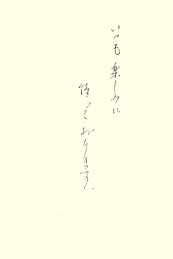 いつも楽しみに
待って
おります。